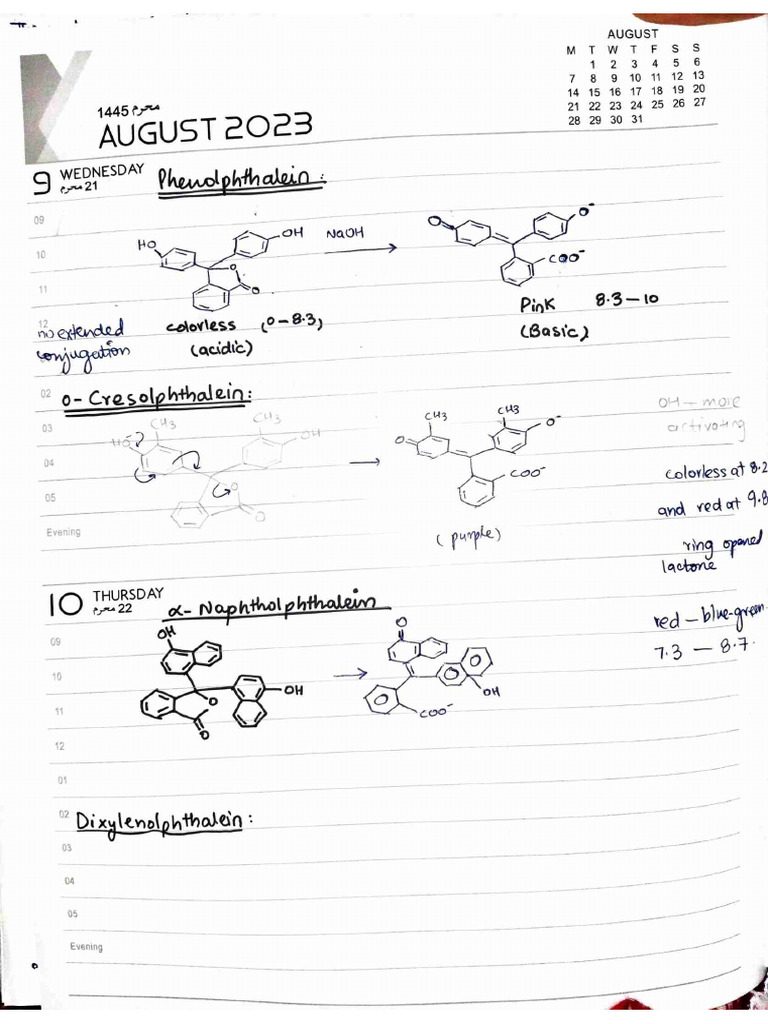 AUGUST
M T W T F S S
1 2 3 4 5 6
7 8 9 10 11 12 13
14 15 16 17 18 19 20
21 22 23 24 25 26 27
28 29 30 31
1445 محرم
AUGUST 2023
9 WEDNESDAY
21 محرم
Phenolphthalein:
09
10
11
12
HO OH NaOH O O⁻
O O COO⁻
no extended
conjugation
colorless (0-8.3)
(acidic)
Pink 8.3-10
(Basic)
02
o-Cresolphthalein:
03
04
05
Evening
CH₃ CH₃
HO OH
O O
CH₃ CH₃
O O⁻
COO⁻
(purple)
OH - more
activating
colorless at 8.2
and red at 9.8
ring opened
lactone
10 THURSDAY
22 محرم
α-Naphtholphthalein
09
10
11
12
OH OH
O O
O OH
COO⁻
red - blue-green
7.3 - 8.7.
01
02
Dixylenolphthalein:
03
04
05
Evening